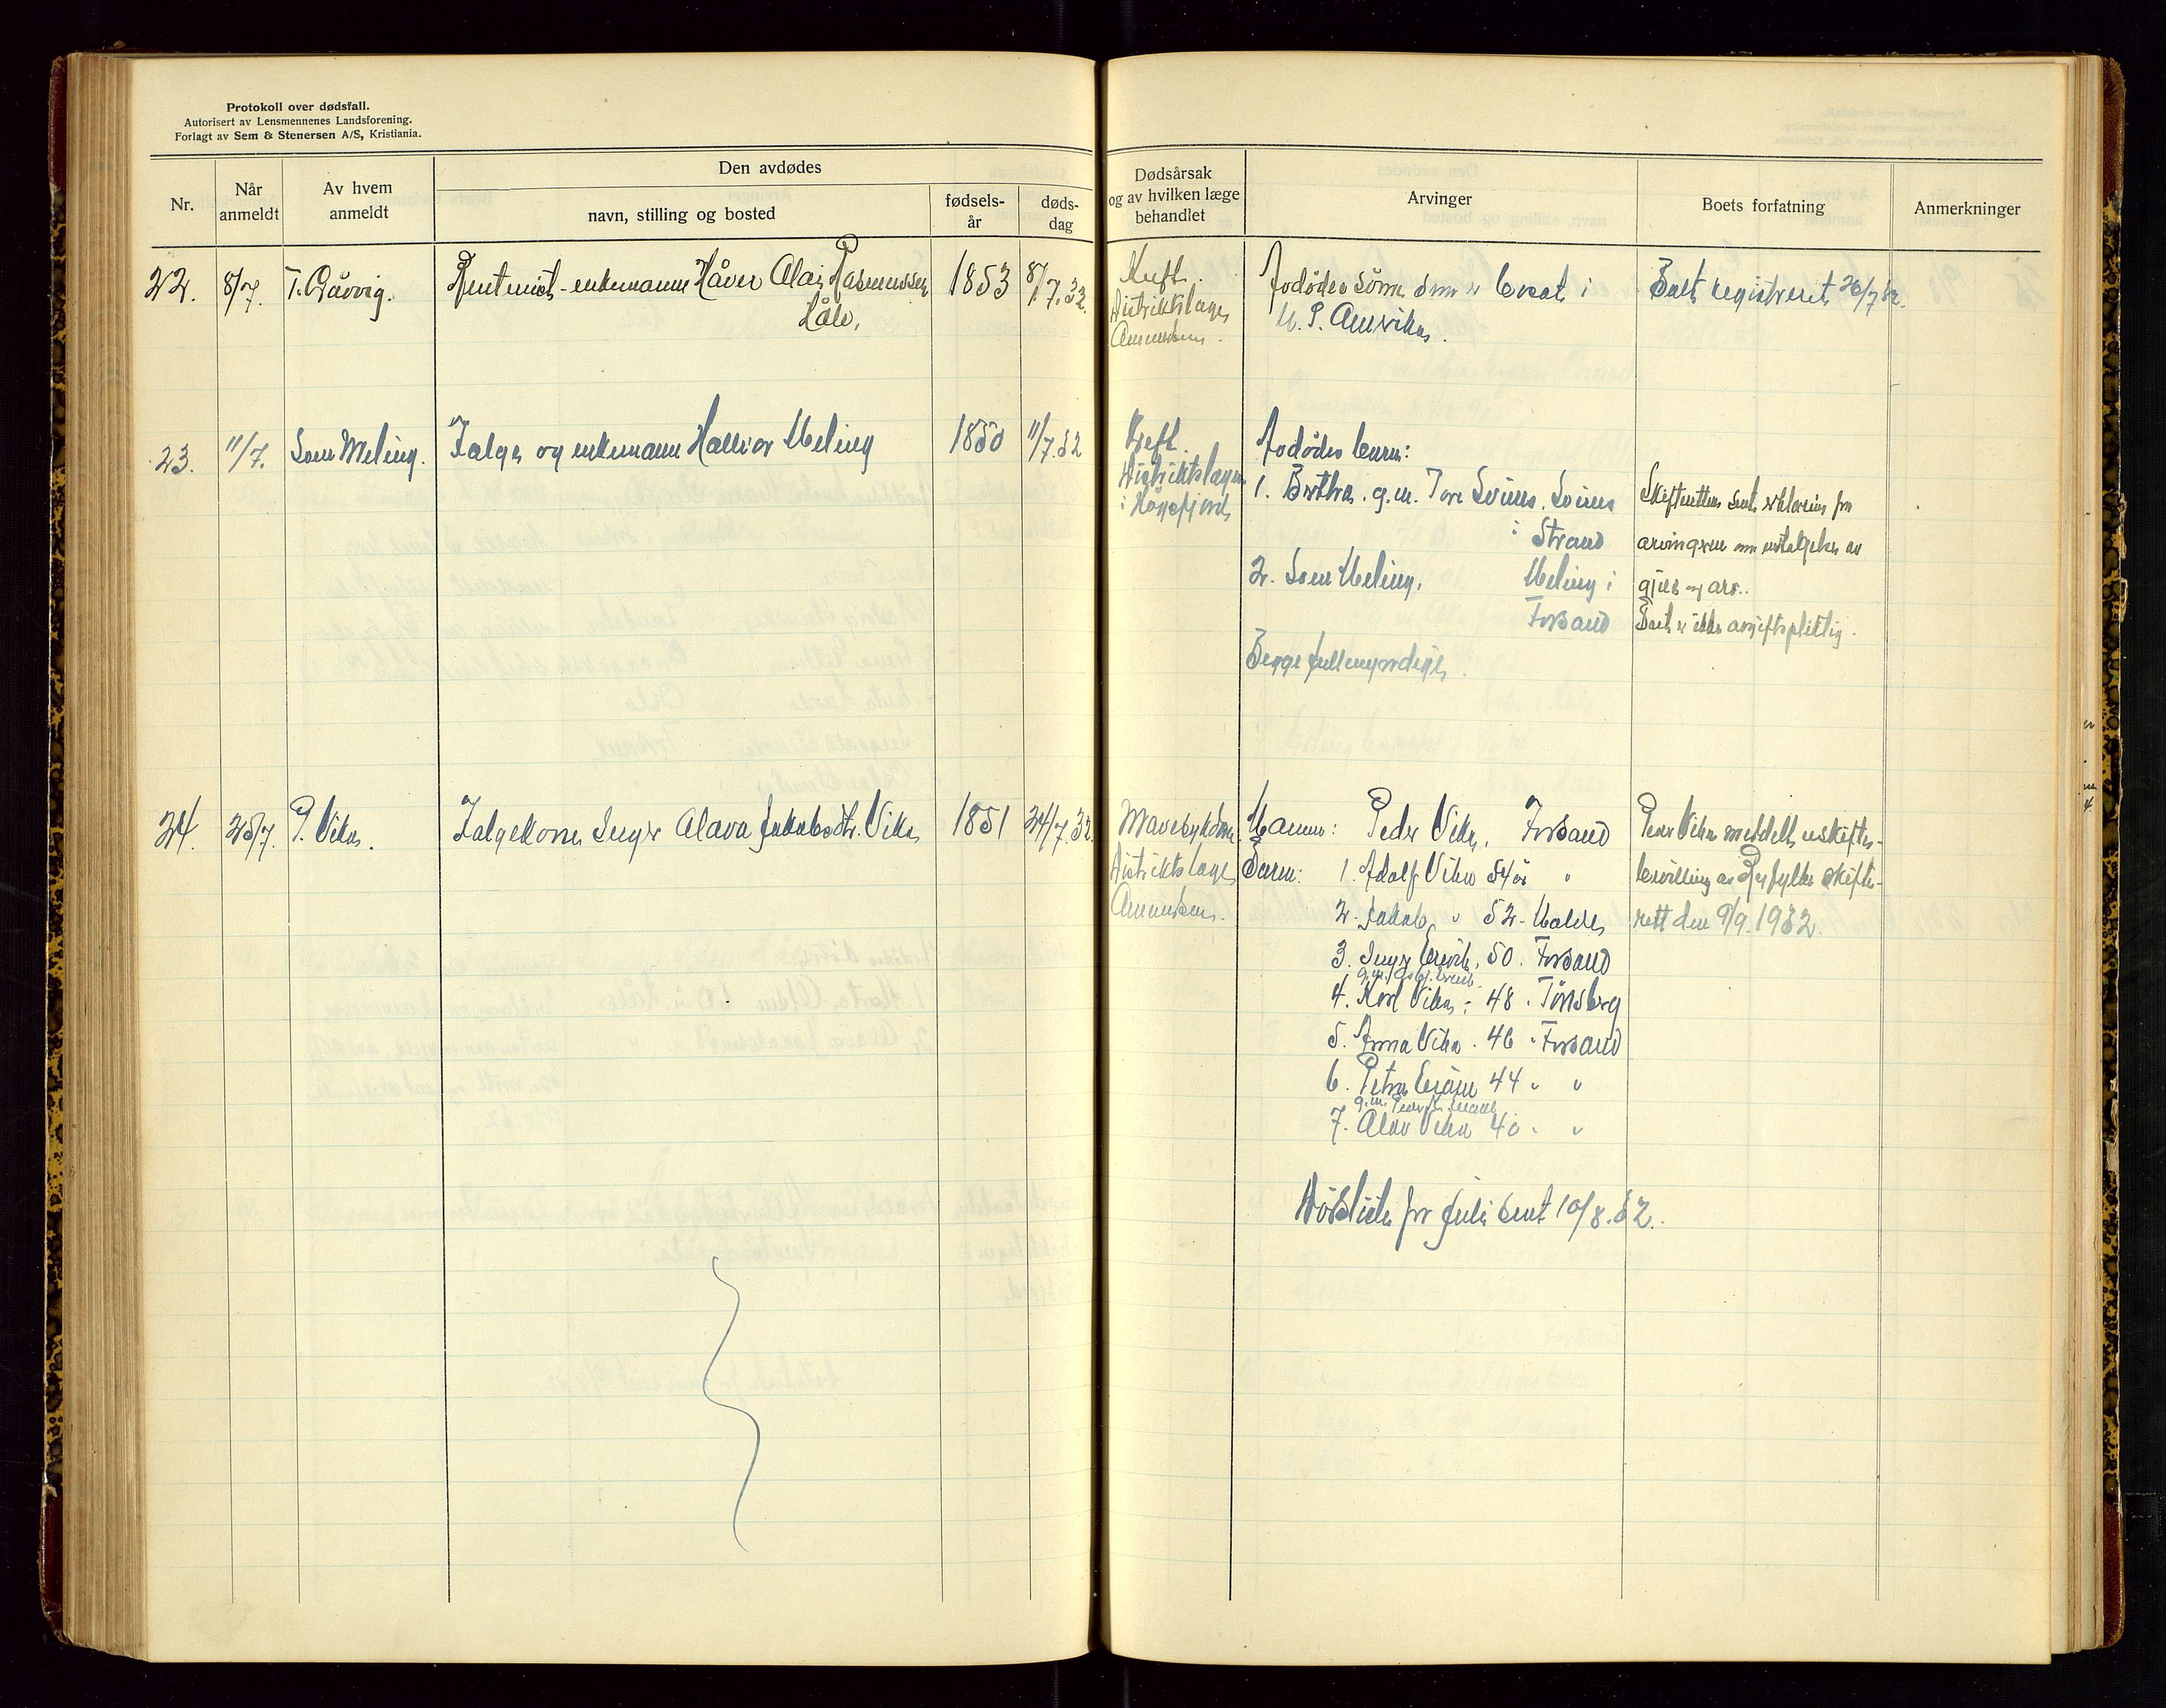 Protokoll over dødsfall.
Autorisert av Lensmennenes Landsforening.
Forlagt av Sem & Stenersen A/S, Kristiania.
Nr.
Når anmeldt
Av hvem anmeldt
Den avdødes
navn, stilling og bosted
fødsels-år
døds-dag
Dødsårsak
og av hvilken læge
behandlet
Arvinger
Boets forfatning
Anmerkninger
22. 8/7. T. Rasmussen Håle, 1853 8/7.32.
Kreft.
Distriktslæge
Amundsen.
Avdødes sønn som er bosat i
U. S. Amerika.
Boet registreret 26/7 32.
23. 11/7. Sven Meling. Folge og enkemann Hallvor Meling 1850 11/7.32
Kreft.
Distriktslægen
i Høgsfjord
Avdødes barn:
1. Bertha g.m. Tore
i Strand
2. Sven Meling, Meling i
Forsand
Begge fullmyndige.
Skifteretten sendt erklæring fra
arvingerne om overtagelse av
gjeld og arv.
Boet er ikke avgiftspliktig.
24. 25/7. P. Vika. Folgekone Inger Olava Jakobsdtr. Vika 1851 24/7.32.
Mavesykdom
Distriktslæge
Amundsen.
Mann: Peder Vika, Forsand
Barn: 1. Adolf Vika 54 år "
2. Jakob " 52. Molde
3. Inger 50. Forsand
4. Karl Vika 48. Tønsberg
5. Anna Vika 46 " Forsand
6. Petra 44 " "
7. Olav Vika 40 " "
Peder Vika meddelt uskifte-
bevilling av Ryfylke skifte-
rett den 9/9.1932.
Dødsliste for juli sent 10/8.32.